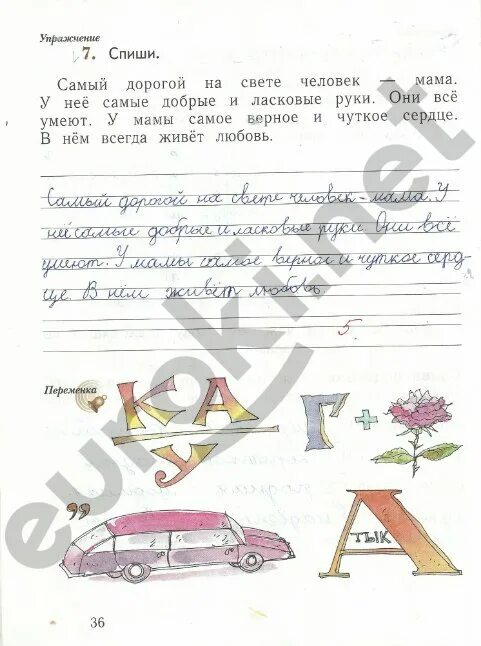 Упражнение
7. Спиши.
Самый дорогой на свете человек — мама.
У неё самые добрые и ласковые руки. Они всё
умеют. У мамы самое верное и чуткое сердце.
В нём всегда живёт любовь.
Самый дорогой на свете человек - мама. У
неё самые добрые и ласковые руки. Они всё
умеют. У мамы самое верное и чуткое серд-
це. В нём живёт любовь
5.
Переменка
КА
У
Г +
,,
А
ТЫК
36
euroki.net